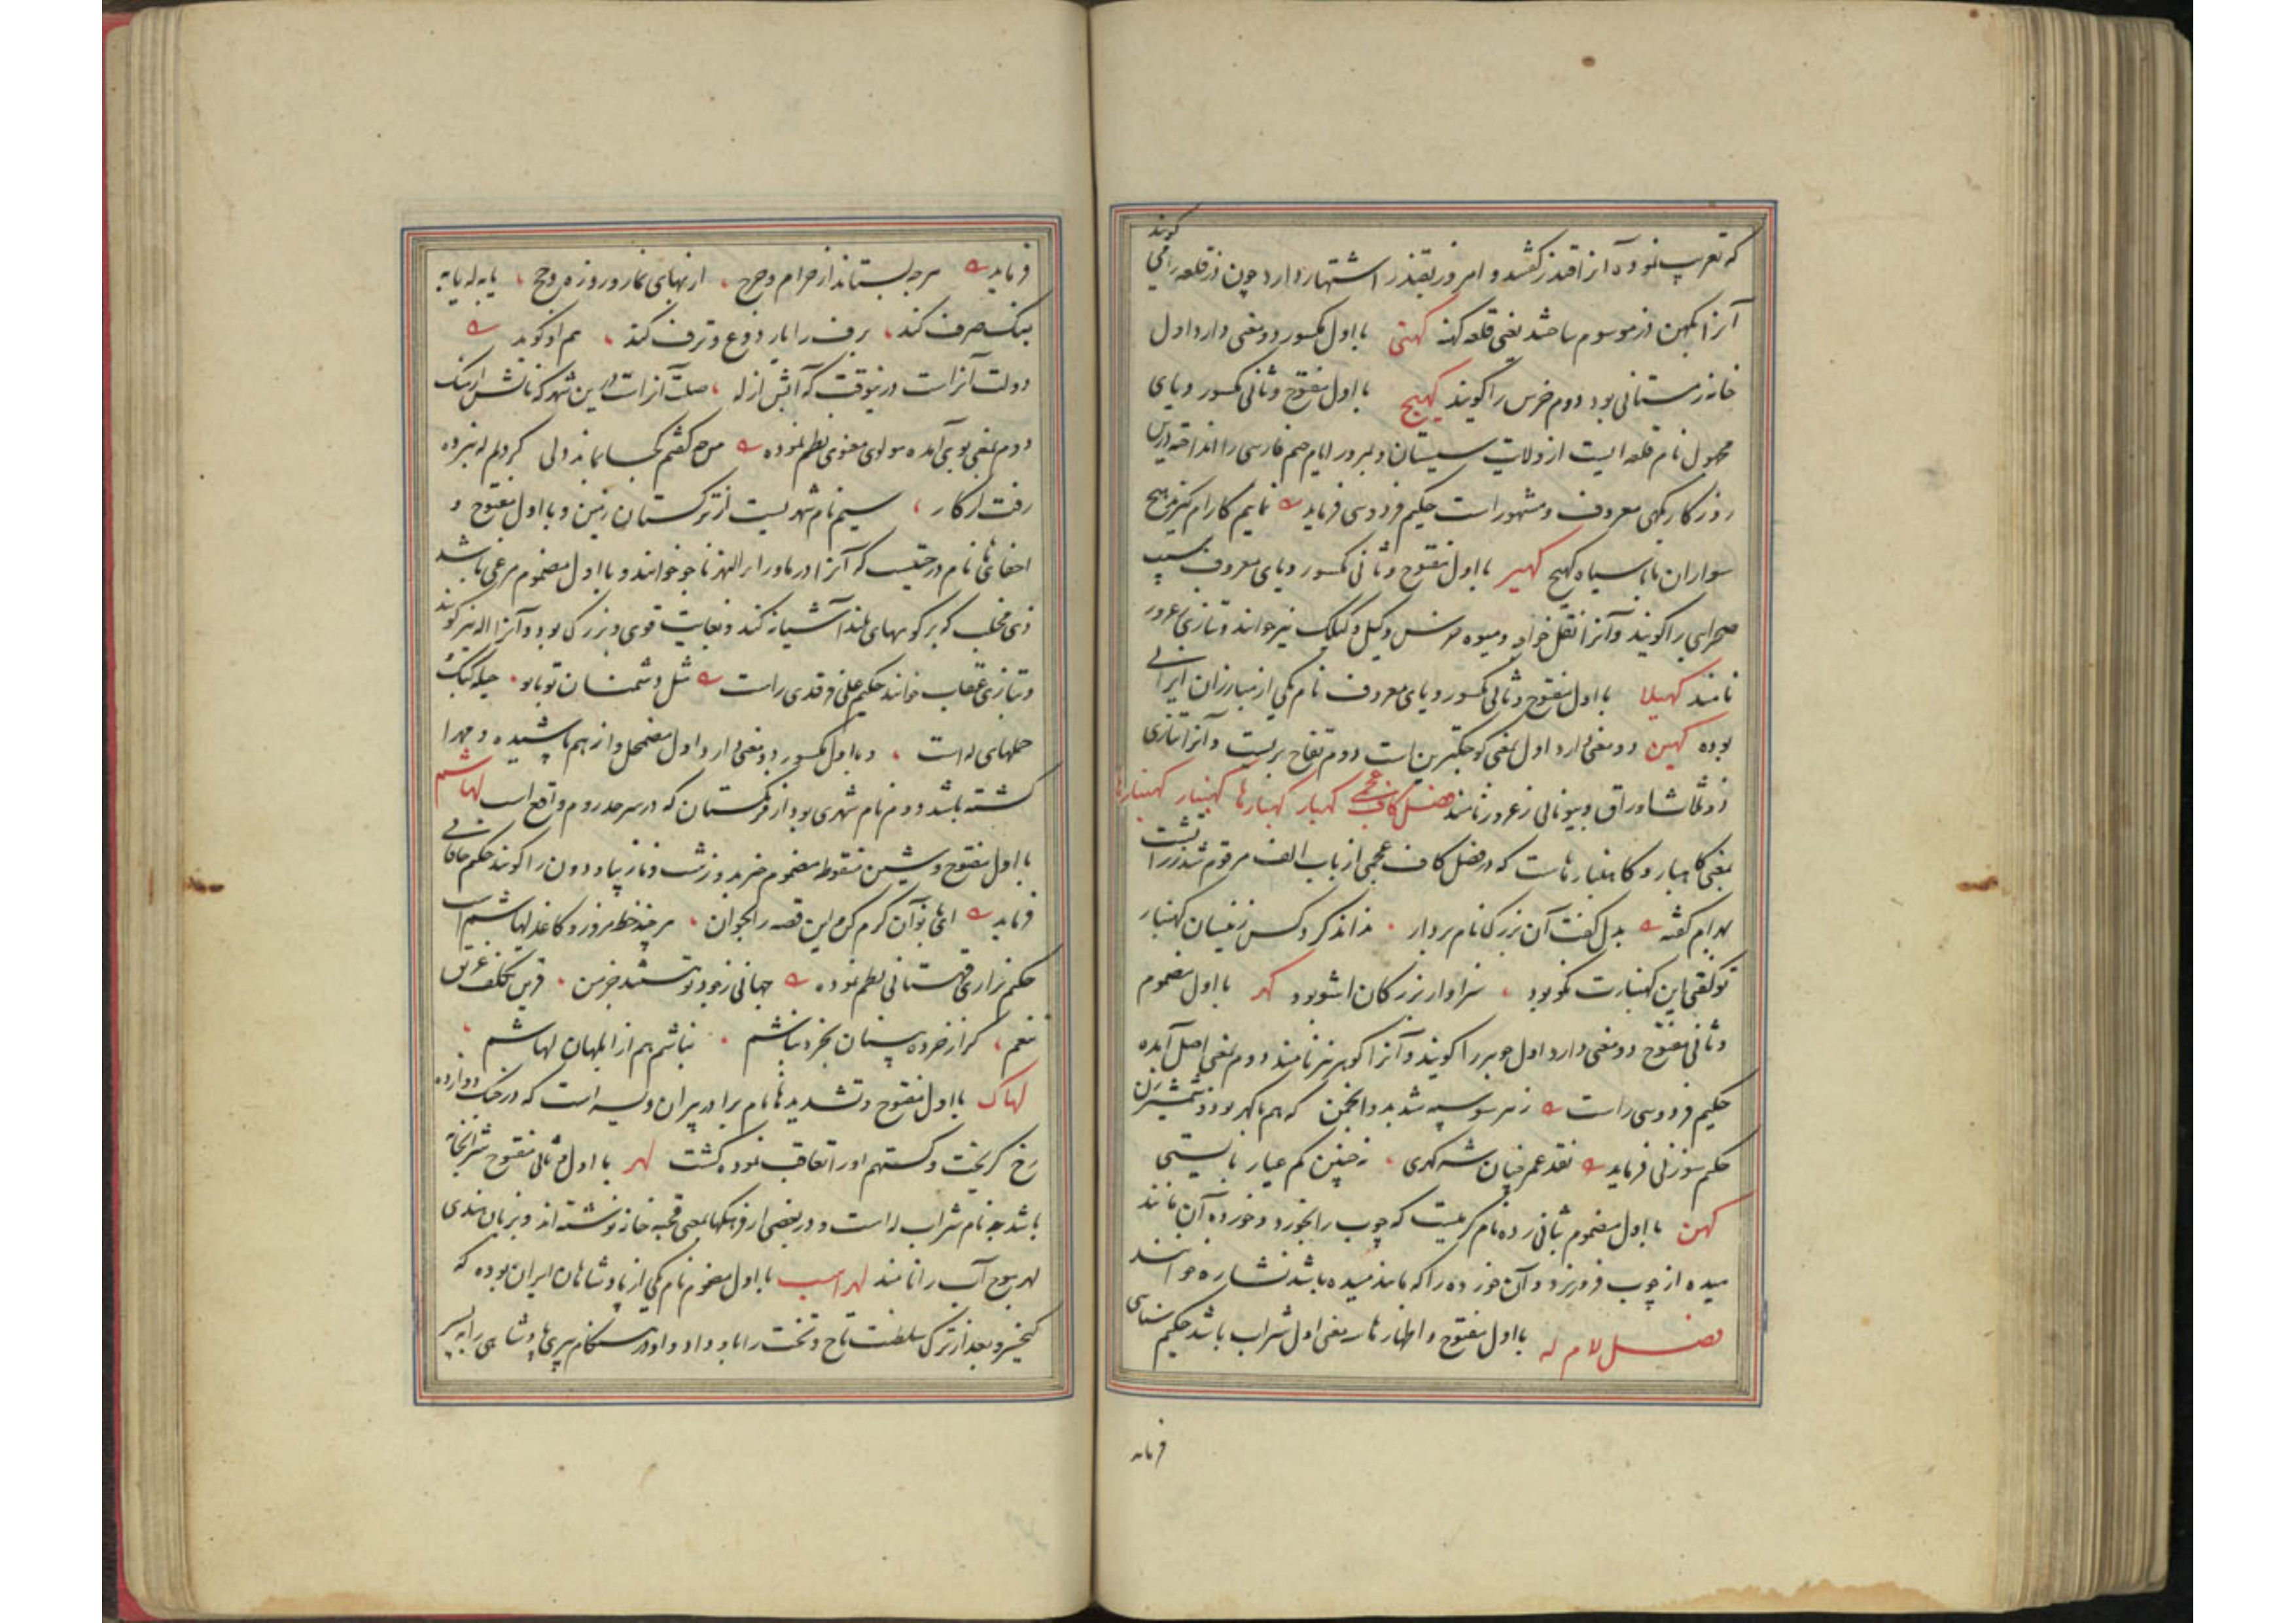 گویند
که تعریب نموده آنرا قندز گفتند و امروز بقندز اشتهار دارد چون دز قلعه را می
آنرا کهن دز موسوم ساختند یعنی قلعه کهنه کهتی با اول مکسور دو معنی دارد اول
خانه زمستانی بود دوم خرس را گویند کهیج با اول مفتوح و ثانی مکسور و یای
مجهول نام قلعه ایست از ولایت سیستان و بمرور ایام جیم فارسی را انداخته درین
روزگار بکهی معروف و مشهور است حکیم فردوسی فرماید نمایم
سواران با سیاه کهیج کهیر با اول مفتوح و ثانی مکسور و یای معروف سیب
صحرایی را گویند و آنرا نقل خواجه و میوه و کیل و کیلک نیز خوانند و بتازی زعرور
نامند کهیلا با اول مفتوح و ثانی مکسور و یای معروف نام یکی از مبارزان ایرانی
بوده کهین دو معنی دارد اول بمعنی کوچکترین است دوم تفاح بریست و آنرا بتازی
ذو ثلاث اوراق و بیونانی زعرور نامند فصل کاف عجمی گهبار گهبارها گهنبار گهنبارها
بمعنی گاهبار و گاهنبارهاست که در فصل کاف عجمی از باب الف مرقوم شد زرتشت
بهرام گفته بدل گفت آن بزرگ نام بردار نداند کرد کس زینسان گهنبار
تو گفتی این گهنبارت نکو بود سزاوار بزرگان شو بود گهر با اول مضموم
و ثانی مفتوح دو معنی دارد اول جوهر را گویند و آنرا گوهر نیز نامند دوم بمعنی اصل آمده
حکیم فردوسی راست ز هر سو سپه شد بر و انجمن که هم با گهر بود و شمشیر زن
حکیم سوزنی فرماید نقد عمر چنان شه گهری نه چنین کم عیار بایستی
گهن با اول مضموم بثانی زده نام کرمیست که چوب را بخورد و خورده آن مانند
میده از چوب فرو ریزد و آن خورده را که مانند میده باشد نشاره خوانند
فصل لام له با اول مفتوح و اظهار ها سه معنی اول شراب باشد حکیم سنایی
فرماید
فرماید هرچه بستاند از حرام و حرج از بهای نماز و روزه و حج یا به له یا به
بنگ صرف کند برف را یار دوغ و ترف کند هم او گوید
دولت آنراست درینوقت که آبش از له صلت آنراست درین شهر که نانش از بنگ
دوم بمعنی بوی آمده مولوی معنوی نظم نموده
رفت از کار سیم نام شهریست از ترکستان زمین و با اول مفتوح و
اخفای ها نام درختیست که آنرا در ماوراءالنهر ناجو خوانند و با اول مضموم مرغی باشد
ذی مخلب که بر کوههای بلند آشیانه کند و بغایت قوی و بزرگ بود و آنرا اله نیز گویند
و بتازی عقاب خوانند حکیم علی فرقدی راست مثل دشمنان تو با تو حیله کبک
حملهای له است و با اول مکسور دو معنی دارد اول مضمحل و از هم پاشیده و مهرا
گشته باشد دوم نام شهری بود از فرنگستان که در سرحد روم واقع است لهاشم
با اول مفتوح و شین منقوطه مضموم چیز بد و زشت و نازیبا و دون را گویند حکیم خاقانی
فرماید این قصه را بخوان هر چند خط مزور و کاغذ لهاشم است
حکیم نزاری قهستانی نظم نموده جهانی ز جود تو مستند جز من
نعم گر از خرده بینان بخرد نباشم نباشم هم از ابلهان لهاشم
لهاک با اول مفتوح و تشدید ها نام برادر پیران ویسه است که در جنگ دوازده
رخ گریخت و گستهم او را تعاقب نموده کشت لهر با اول و ثانی مفتوح شرابخانه
باشد چه نام شراب له است و در بعضی از فرهنگها بمعنی قحبه خانه نوشته اند و بزبان هندی
لهر موج آب را نامند لهراسب با اول مضموم نام یکی از پادشاهان ایران بوده که
کیخسرو بعد از ترک سلطنت تاج و تخت را باو داد و او در هنگام پیری پادشاهی را به پسر